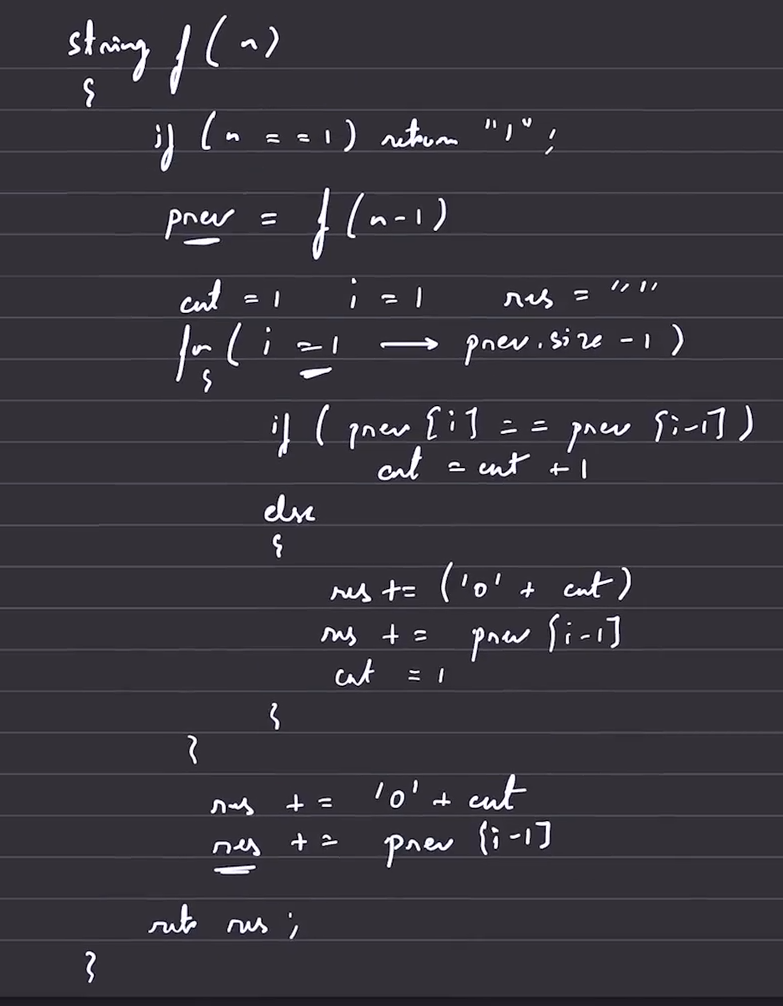 string f(n)
{
if (n == 1) return "1";
prev = f(n-1)
cnt = 1 i = 1 res = ""
for ( i = 1 → prev.size - 1 )
{
if ( prev [i] == prev [i-1] )
cnt = cnt + 1
else
{
res += ('0' + cnt)
res += prev [i-1]
cnt = 1
}
}
res += '0' + cnt
res += prev [i-1]
retn res ;
}